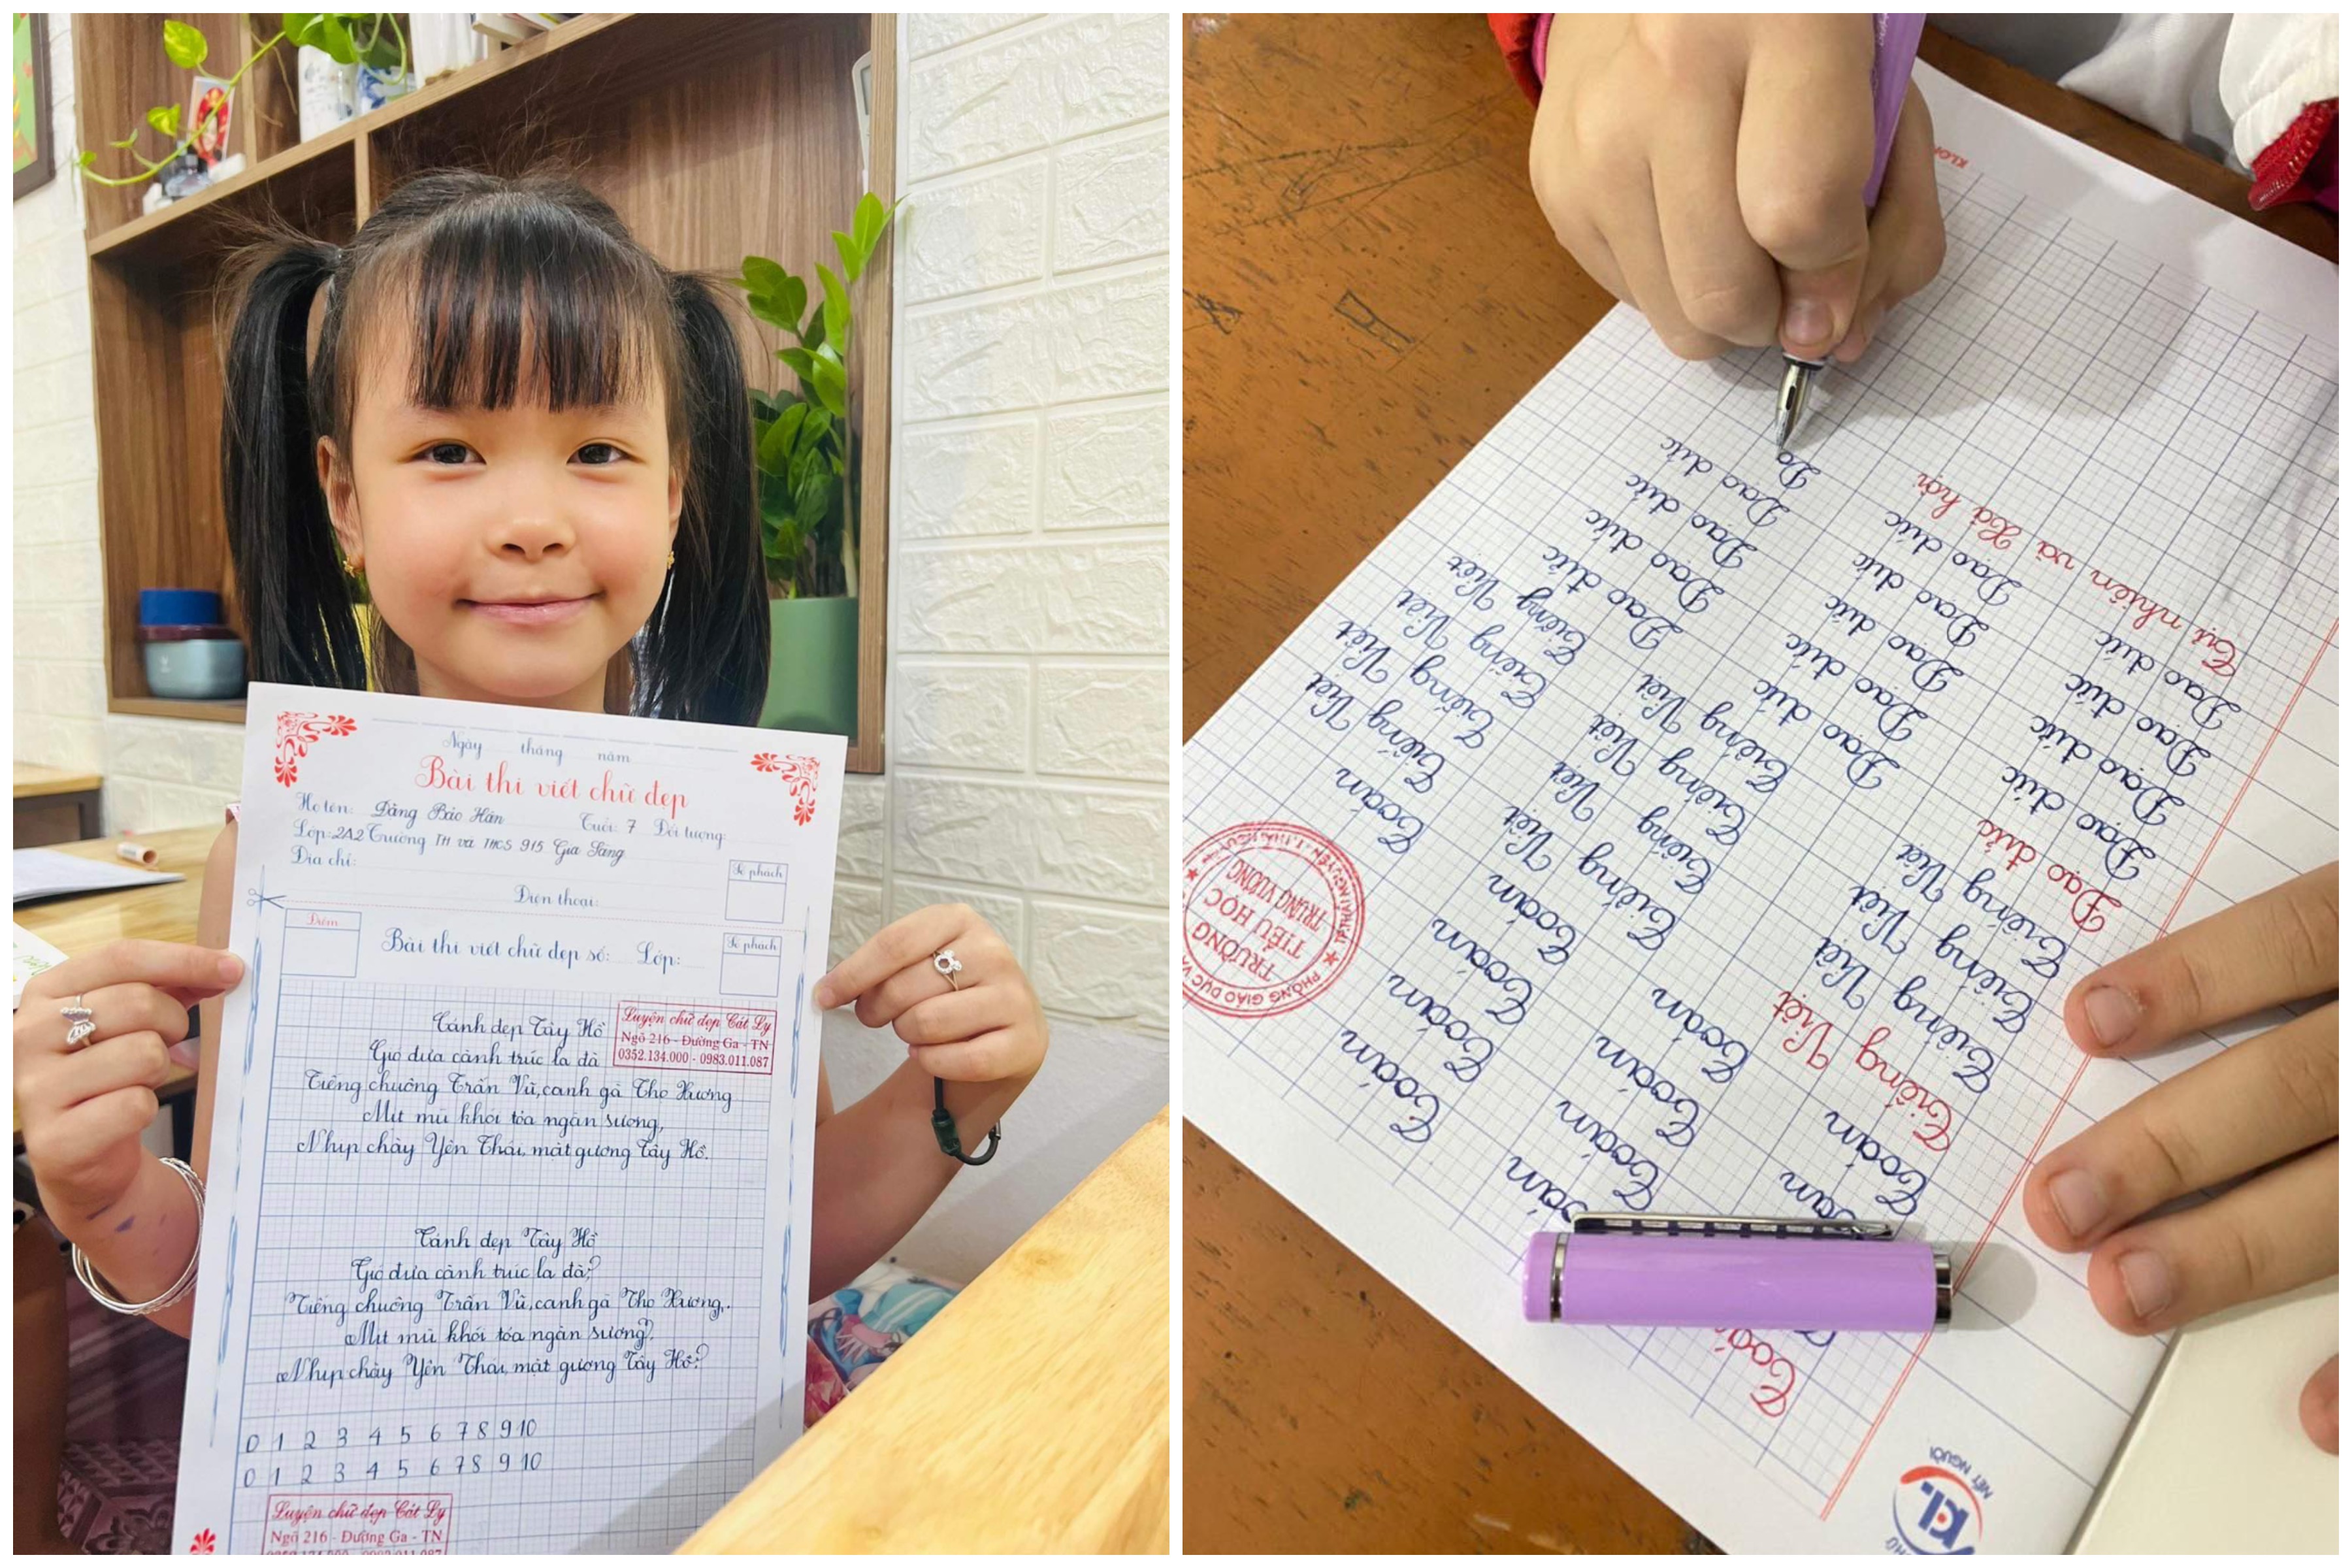 Ngày tháng năm
Bài thi viết chữ đẹp
Họ tên: Đặng Bảo Hân Tuổi: 7 Đối tượng:
Lớp: 2A2 Trường TH và THCS 915 Gia Sàng
Địa chỉ:
Điện thoại:
Số phách
Điểm
Bài thi viết chữ đẹp số: Lớp:
Số phách
Cảnh đẹp Tây Hồ
Gió đưa cành trúc la đà
Tiếng chuông Trấn Vũ, canh gà Thọ Xương
Mịt mù khói tỏa ngàn sương,
Nhịp chày Yên Thái, mặt gương Tây Hồ.
Luyện chữ đẹp Cát Ly
Ngõ 216 - Đường Ga - TN
0352.134.000 - 0983.011.087
Cảnh đẹp Tây Hồ
Gió đưa cành trúc la đà?
Tiếng chuông Trấn Vũ, canh gà Thọ Xương,.
Mịt mù khói tỏa ngàn sương?
Nhịp chày Yên Thái, mặt gương Tây Hồ?
0 1 2 3 4 5 6 7 8 9 10
0 1 2 3 4 5 6 7 8 9 10
Luyện chữ đẹp Cát Ly
Ngõ 216 - Đường Ga - TN
KL
NÉT NGƯỜI
Toán Toán
Toán Toán Toán
Tiếng Việt Toán Toán
Tiếng Việt Tiếng Việt Toán
Tiếng Việt Tiếng Việt Toán
Tiếng Việt Tiếng Việt Tiếng Việt
Đạo đức Tiếng Việt Tiếng Việt
Đạo đức Đạo đức Tiếng Việt
Đạo đức Đạo đức Tiếng Việt
Đạo đức Đạo đức Đạo đức
Đạo đức Đạo đức Đạo đức
Tự nhiên và Xã hội Đạo đức Đạo đức
Đạo đức
Đạ
PHÒNG GIÁO DỤC
TRƯỜNG
TIỂU HỌC
TRƯNG VƯƠNG